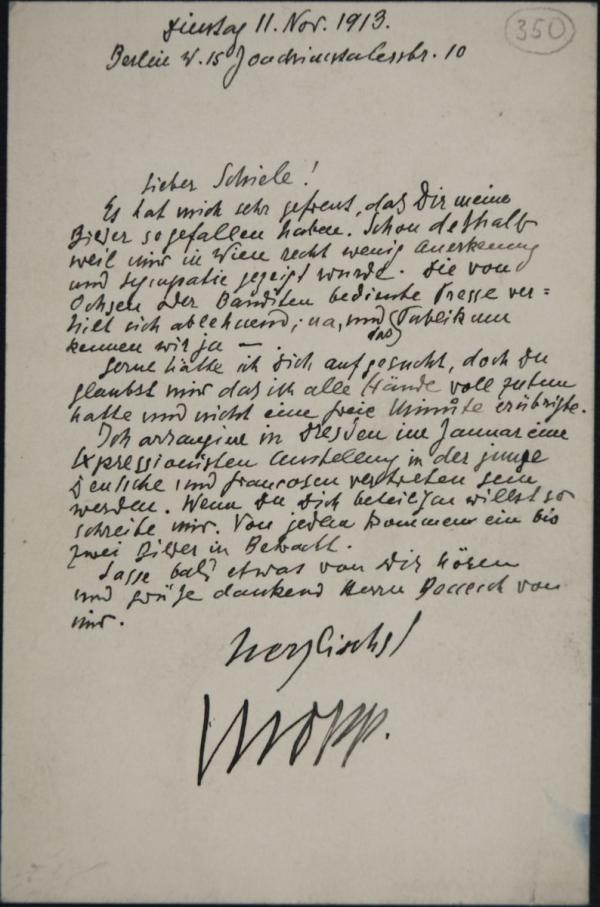 Dienstag 11. Nov. 1913.
350
Berlin W. 15 Joachimstalerstr. 10
Lieber Schiele!
Es hat mich sehr gefreut, daß Dir meine
Bilder so gefallen haben. Schon deshalb
weil mir in Wien recht wenig Anerkennung
und Sympatie gezeigt wurde. Die von
Ochsen oder Banditen bediente Presse ver=
hielt sich ablehnend; na, und das Publikum
kennen wir ja — .
Gerne hätte ich Dich aufgesucht, doch Du
glaubst mir daß ich alle Hände voll zu tun
hatte und nicht eine freie Minute erübrigte.
Ich arrangiere in Dresden im Januar eine
Expressionisten Austellung in der junge
Deutsche und Franzosen vertreten sein
werden. Wenn Du Dich beteiligen willst so
schreibe mir. Von jedem kommen ein bis
zwei Bilder in Betracht.
Lasse bald etwas von Dir hören
und grüße dankend Herrn von
mir.
Herzlichst
Mopp.